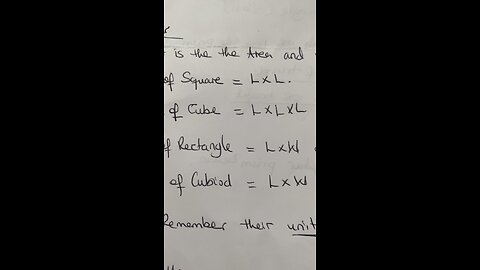 is the the Area and
of Square = L x L.
of Cube = L x L x L
of Rectangle = L x W
of Cubiod = L x W
Remember their unit